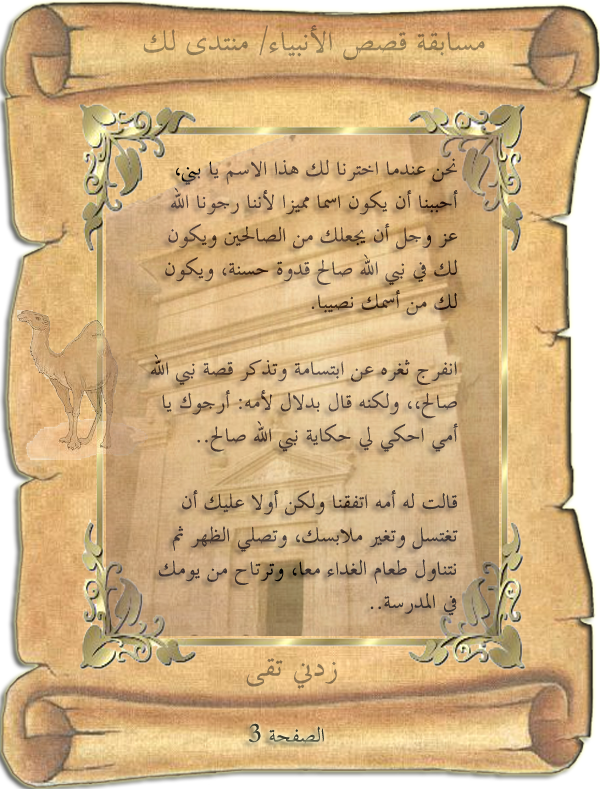 مسابقة قصص الأنبياء/ منتدى لك
نحن عندما اخترنا لك هذا الاسم يا بني،
أحببنا أن يكون اسما مميزا لأننا رجونا الله
عز وجل أن يجعلك من الصالحين ويكون
لك في نبي الله صالح قدوة حسنة، ويكون
لك من أسمك نصيبا.
انفرج ثغره عن ابتسامة وتذكر قصة نبي الله
صالح،، ولكنه قال بدلال لأمه: أرجوك يا
أمي احكي لي حكاية نبي الله صالح..
قالت له أمه اتفقنا ولكن أولا عليك أن
تغتسل وتغير ملابسك، وتصلي الظهر ثم
نتناول طعام الغداء معا، وترتاح من يومك
في المدرسة..
زدني تقى
الصفحة 3